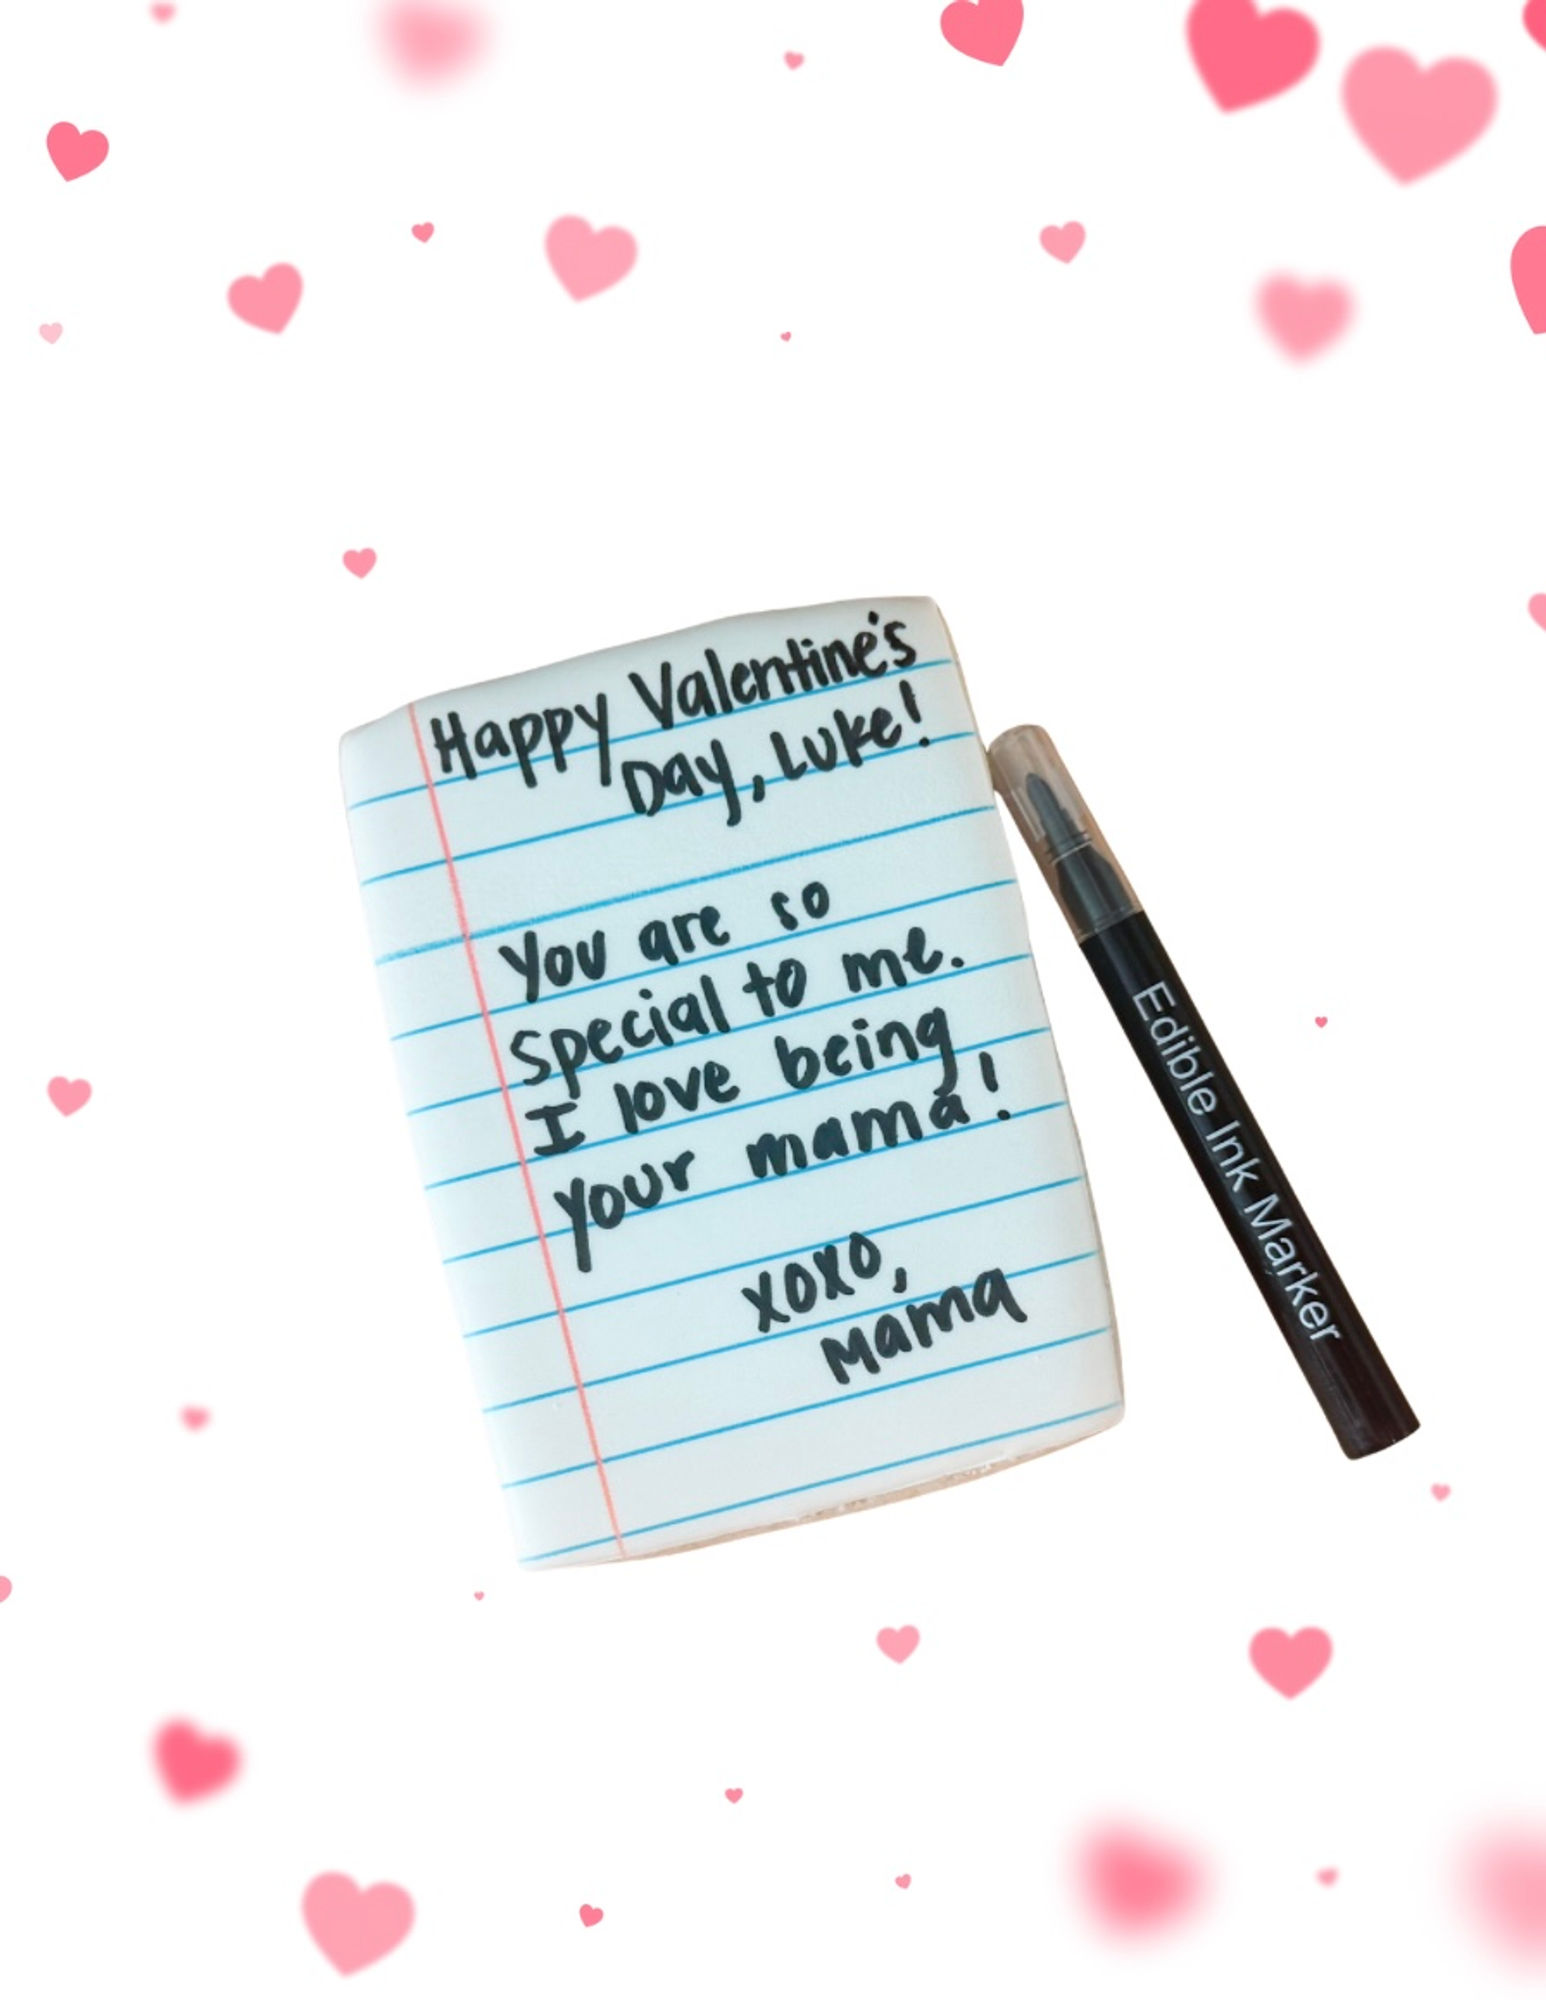 Happy Valentine's
Day, Luke!
You are so
special to me.
I love being
your mama!
xoxo,
Mama
Edible Ink Marker